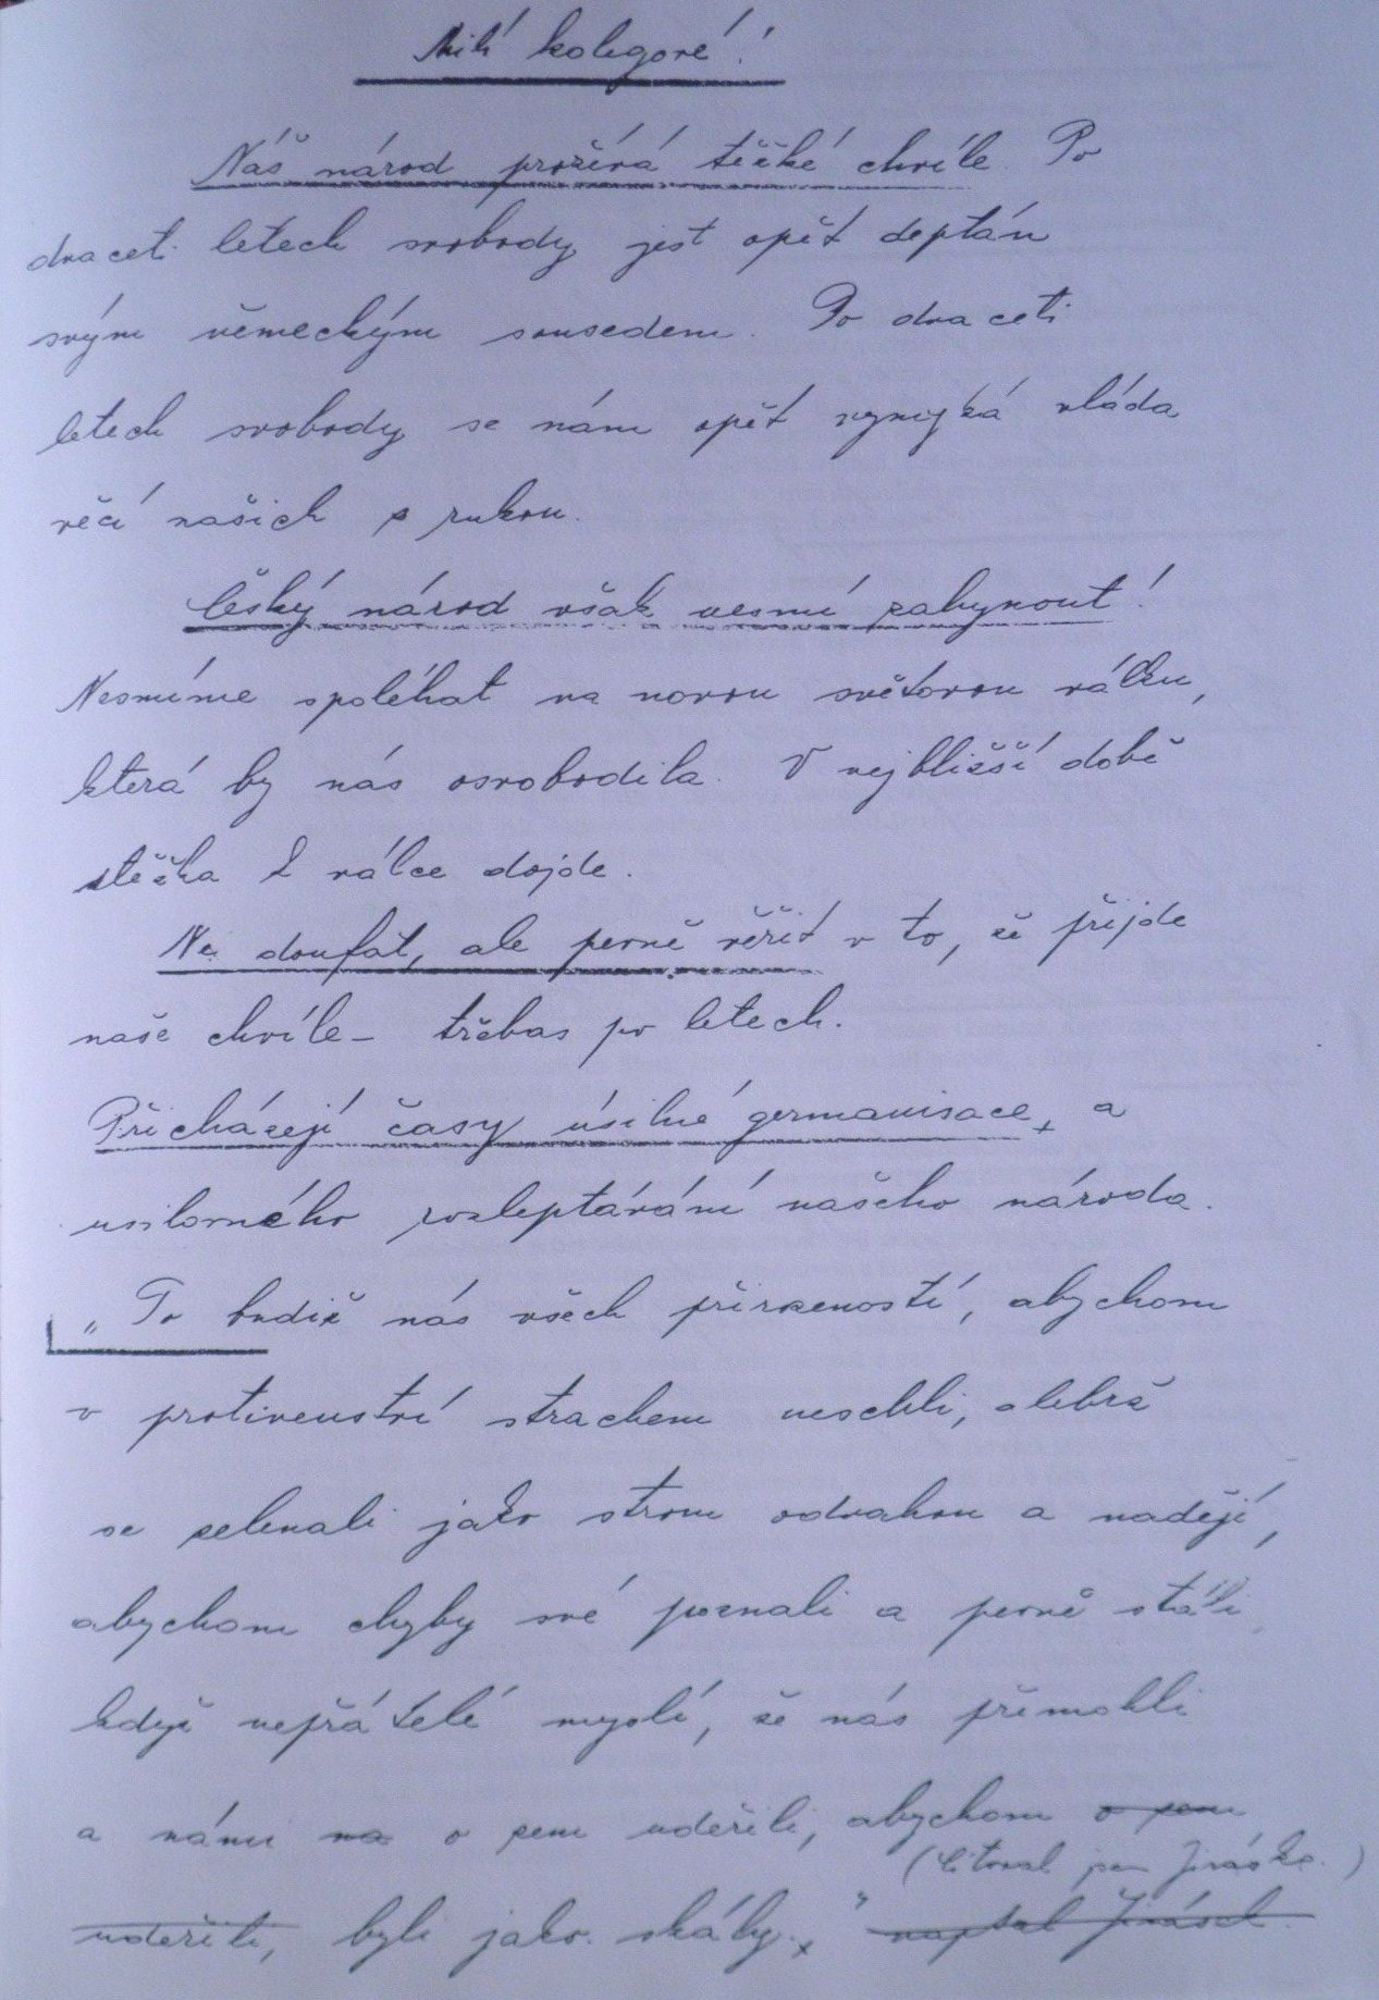 Milí kolegové!
Náš národ prožívá těžké chvíle. Po
dvaceti letech svobody jest opět deptán
svým německým sousedem. Po dvaceti
letech svobody se nám opět vymyká vláda
věcí našich z rukou.
Český národ však nesmí zahynout!
Nesmíme spoléhat na novou světovou válku,
která by nás osvobodila. V nejbližší době
stěžka k válce dojde.
Ne doufat, ale pevně věřit v to, že přijde
naše chvíle – třebas po letech.
Přicházejí časy úsilné germanisace, a
usilovného rozleptávání našeho národa.
„To budiž nás všech přirozeností, abychom
v protivenství strachem neschli, alebrž
se zelenali jako strom odvahou a nadějí,
abychom chyby své poznali a pevně stáli,
když nepřátelé myslí, že nás přemohli
a námi na o zem udeřili, abychom o zem
(Citoval jsem Jiráska.)
udeřili, byli jako skály." napsal Jirásek.